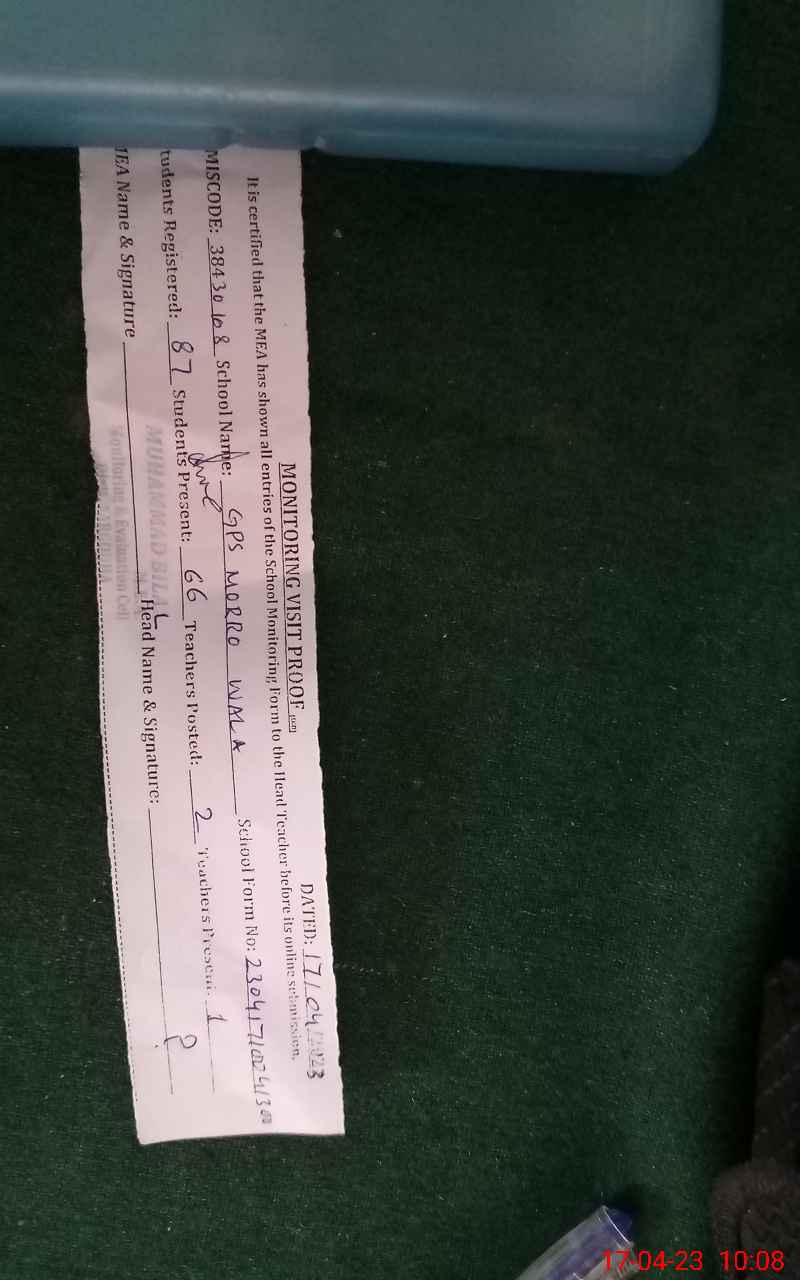 MONITORING VISIT PROOF
DATED: 17/04/2023
It is certified that the MEA has shown all entries of the School Monitoring Form to the Head Teacher before its online submission.
MISCODE: 38430108 School Name: GPS MORRO WALA School Form No:
tudents Registered: 87 Students Present: 66 Teachers Posted: 2 Teachers Present: 1
MEA Name & Signature Head Name & Signature:
MUHAMMAD BILAL
Monitoring & Evaluation Cell
17-04-23 10:08